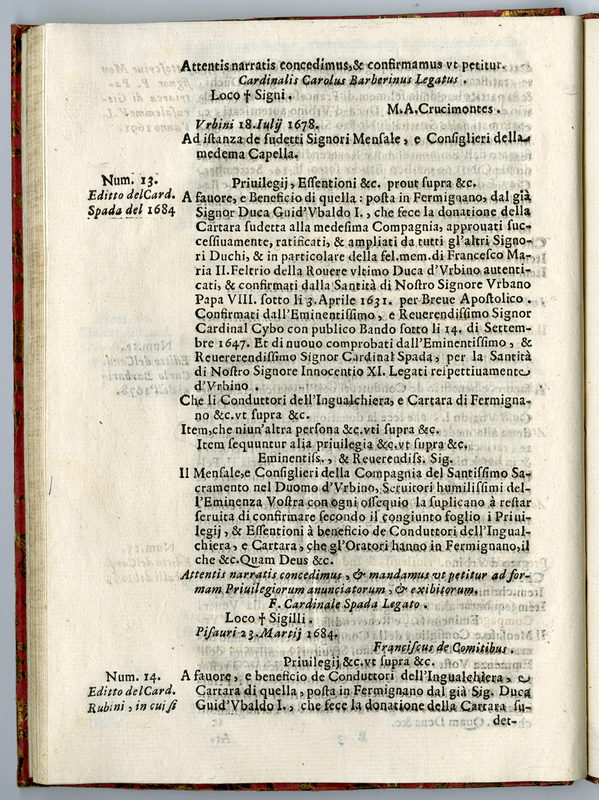 Attentis narratis concedimus,& confirmamus vt petitur.
Cardinalis Carolus Barberinus Legatus .
Loco † Signi .
M.A.Crucimontes .
Vrbini 18.Iulij 1678.
Ad istanza de sudetti Signori Mensale , e Consiglieri della
medema Capella.
Num. 13.
Editto del Card.
Spada del 1684
Priuilegij , Essentioni &c. prout supra &c.
A fauore, e Beneficio di quella : posta in Fermignano, dal già
Signor Duca Guid'Vbaldo I. , che fece la donatione della
Cartara sudetta alla medesima Compagnia, approuati suc-
cessiuamente, ratificati, & ampliati da tutti gl'altri Signo-
ri Duchi, & in particolare della fel.mem.di Francesco Ma-
ria II.Feltrio della Rouere vltimo Duca d'Vrbino autenti-
cati, & confirmati dalla Santità di Nostro Signore Vrbano
Papa VIII. sotto li 3.Aprile 1631. per Breue Apostolico .
Confirmati dall'Eminentissimo , e Reuerendissimo Signor
Cardinal Cybo con publico Bando sotto li 14. di Settem-
bre 1647. Et di nuouo comprobati dall'Eminentissimo , &
Reuererendissimo Signor Cardinal Spada, per la Santità
di Nostro Signore Innocentio XI. Legati respettiuamente
d'Vrbino .
Che li Conduttori dell'Ingualchiera, e Cartara di Fermigna-
no &c.vt supra &c.
Item,che niun'altra persona &c.vti supra &c.
Item sequuntur alia priuilegia &c.vt supra &c.
Eminentiss. , & Reuerendiss. Sig.
Il Mensale,e Consiglieri della Compagnia del Santissimo Sa-
cramento nel Duomo d'Vrbino, Seruitori humilissimi del-
l'Eminenza Vostra con ogni ossequio la suplicano à restar
seruita di confirmare secondo il congiunto foglio i Priui-
legij , & Essentioni à beneficio de Conduttori dell'Ingual-
chiera , e Cartara, che gl'Oratori hanno in Fermignano,il
che &c.Quam Deus &c.
Attentis narratis concedimus , & mandamus vt petitur ad for-
mam Priuilegiorum anunciatorum , & exibitorum.
F. Cardinale Spada Legato .
Loco † Sigilli .
Pisauri 23.Martij 1684.
Franciscus de Comitibus .
Priuilegij &c.vt supra &c.
Num. 14.
Editto del Card.
Rubini , in cui si
A fauore , e beneficio de Conduttori dell'Ingualchiera , e
Cartara di quella , posta in Fermignano dal già Sig. Duca
Guid'Vbaldo I. , che fece la donatione della Cartara su-
det-